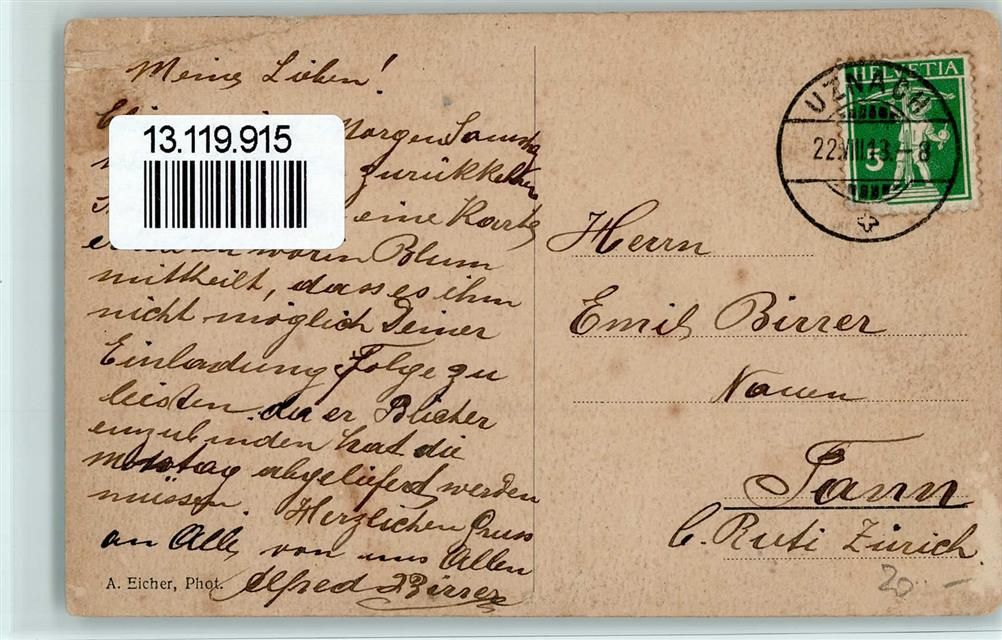 Meine Lieben!
13.119.915
Morgen
zurückkehren
eine Karte
worin Blum
mittheilt, dass es ihm
nicht möglich Deiner
Einladung Folge zu
leisten da er Bücher
einzubinden hat die
Montag abgeliefert werden
müssen. Herzlichen Gruss
an Alle von uns Allen
Alfred Birrer
A. Eicher, Phot.
HELVETIA
5
UZNACH
22.VIII.13.-8
Herrn
Emil Birrer
Nauen
Tann
b. Ruti Zürich
20.-